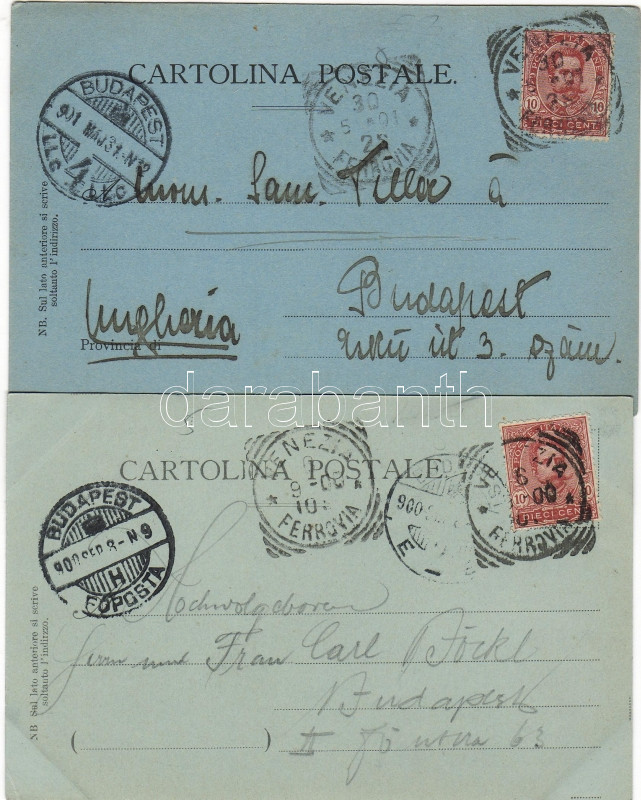 CARTOLINA POSTALE.
VENEZIA
30
5 - 01
2S
FERROVIA
VENEZIA
30
FERROVIA
10 10
DIECI CENT.
BUDAPEST
901 MAJ 31 - N12
4
NB. Sul lato anteriore si scrive
soltanto l'indirizzo.
Mom. Sam. Tilla à
Budapest
Ungheria
Provincia di
Eskü út 3. szám.
darabanth
CARTOLINA POSTALE.
VENEZIA
9 - 00
10
FERROVIA
VENEZIA
6
9 - 00
FERROVIA
10
DIECI CENT.
BUDAPEST
900 SEP 8 - N 9
H
FŐPOSTA
900 SEP
NB Sul lato anteriore si scrive
soltanto l'indirizzo.
Hochwolgeboren
Herrn und Frau Carl Böckl
Budapest
II Fö utcza 63
( )